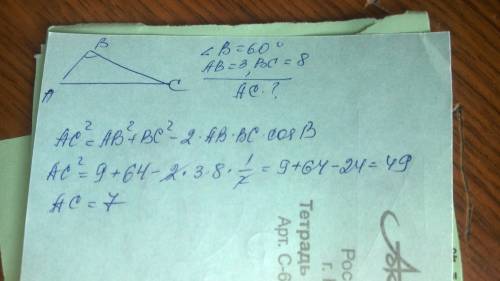 B
∠B=60°
AB=3, BC=8
A
C
AC-?
AC²=AB²+BC²-2·AB·BC·cosB
AC²=9+64-2·3·8·1/2=9+64-24=49
AC=7
Тетрадь
Арт. С-6
Рос
г.